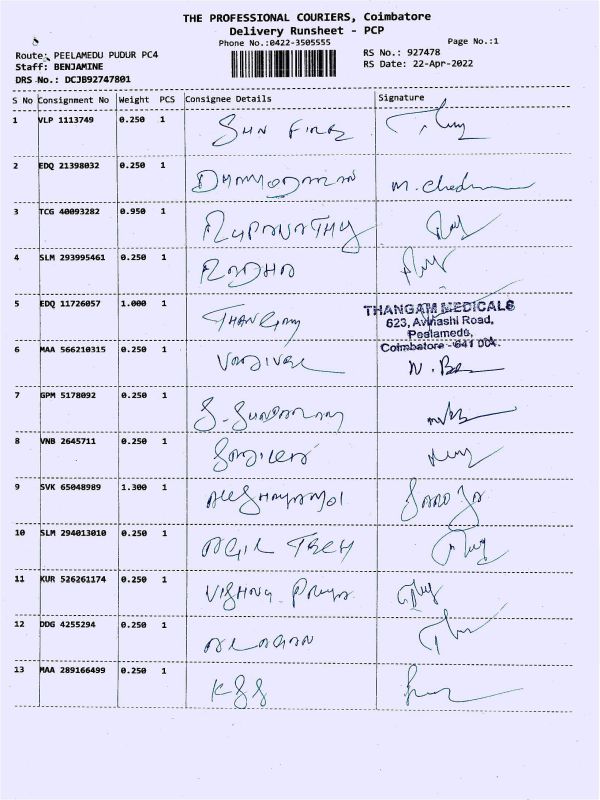 THE PROFESSIONAL COURIERS, Coimbatore
Delivery Runsheet - PCP
Phone No.:0422-3505555
Page No.:1
Route: PEELAMEDU PUDUR PC4
RS No.: 927478
Staff: BENJAMINE
RS Date: 22-Apr-2022
DRS No.: DCJB92747801
S No Consignment No Weight PCS Consignee Details Signature
1 VLP 1113749 0.250 1 SUN FIRE
2 EDQ 21398032 0.250 1 DHAMODARAN
3 TCG 40093282 0.950 1 RUPAVATHY
4 SLM 293995461 0.250 1 RADHA
5 EDQ 11726057 1.000 1 THANGAM
THANGAM MEDICALS
623, Avinashi Road,
Peelamedu,
Coimbatore - 641 004.
6 MAA 566210315 0.250 1 VADIVEL
7 GPM 5178092 0.250 1 S. SUNDARAM
8 VNB 2645711 0.250 1
9 SVK 65048989 1.300 1 SAROJA
10 SLM 294013010 0.250 1 AGIL TECH
11 KUR 526261174 0.250 1 VISHNU PRIYA
12 DDG 4255294 0.250 1 ALAGAN
13 MAA 289166499 0.250 1